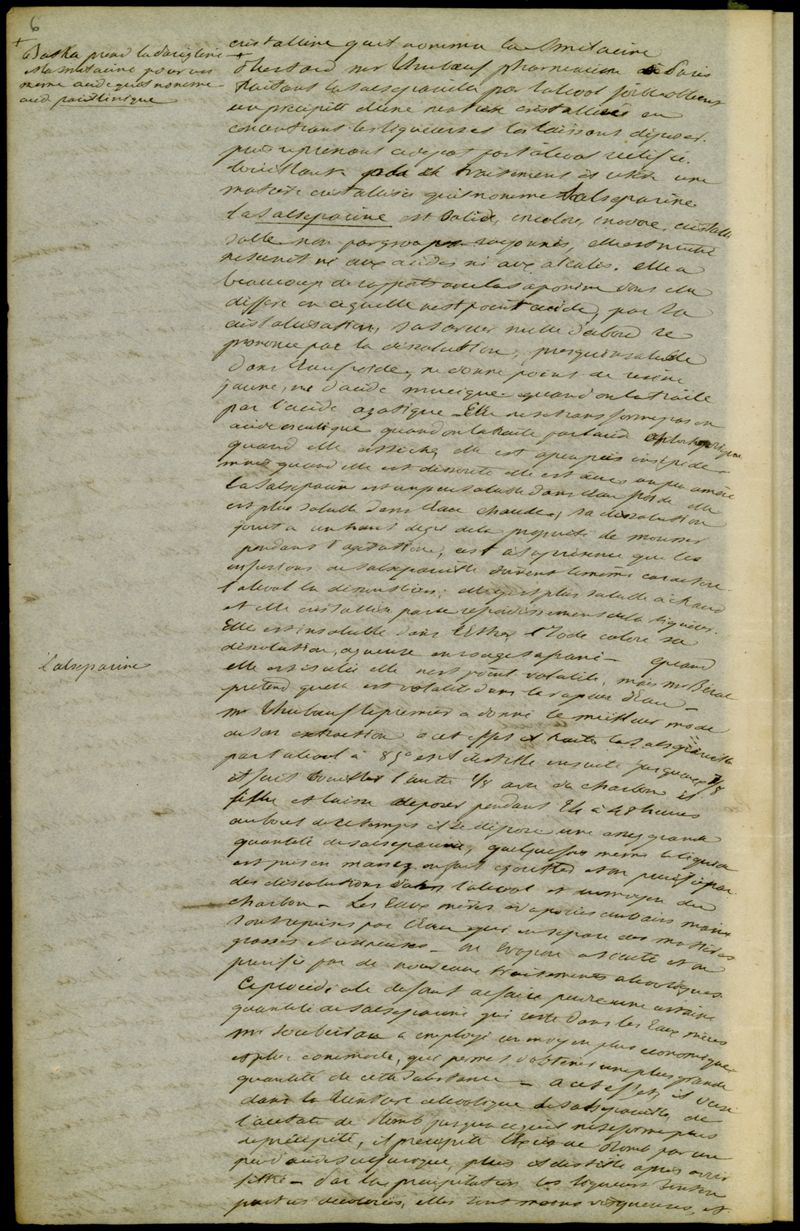 6
+ Batka prend la parigline
et la smilacine pour un
meme acide qu'il nomme
acide parillinique
cristalline qu'il nomma la Smilacine +
Thubœuf pharmacien à Paris
traitant la salsepareille par l'alcool faible obtient
un precipité d'une matiere cristalline en
concentrant les liqueurs et les laissant deposer.
puis reprenant ce depot par l'alcool rectifié.
traitement et une
matiere cristalline qu'il nomme Salseparine
La Salseparine est solide, incolore, inodore, cristalli
elle est neutre
ne s'unit ni aux acides ni aux alcalis. elle a
beaucoup de rapports avec la saponine dont elle
differe en ce qu'elle n'est point acide, par sa
cristallisation, sa saveur nulle d'abord se
prononce par la dissolution, presqu'insoluble
dans l'eau froide, ne donne point de resine
jaune, ni d'acide mucique quand on la traite
par l'acide azotique. Elle ne se transforme pas en
acide quand on la traite par
quand elle est seche, elle est apeupres insipide
mais quand elle est dissoute elle est acre un peu amère
La salseparine est un peu soluble dans l'eau froide elle
est plus soluble dans l'eau chaude, sa dissolution
jouit a un haut degré de la propriété de mousser
pendant l'agitation, c'est à sa présence que les
infusions de salsepareille doivent le même caractere.
l'alcool la dissout bien; elle y est plus soluble à chaud
et elle cristallise par le refroidissement de la liqueur.
Elle est insoluble dans l'ether, l'Iode colore sa
dissolution aqueuse en rouge safrané. quand
Salseparine
elle est isolée elle n'est point volatile, mais Mr Béral
pretend qu'elle est volatile dans la vapeur d'Eau.
Mr Thubœuf le premier a donné le meilleur mode
de son extraction a cet effet il traite la salsepareille
par l'alcool à 85° et distille ensuite jusqu'aux 7/8
et fait bouillir l'autre 1/8 avec du charbon il
filtre et laisse deposer pendant 24 à 48 heures
au bout de ce temps il se depose une assez grande
quantité de salseparine, quelquefois meme la liqueur
est prise en masse, on fait egoutter et on purifie par
des dissolutions dans l'alcool et au moyen du
charbon. Les Eaux mères evaporées au bain marie
sont reprises par l'Eau qui en separe des matieres
grasses et resineuses. on evapore a siccité et on
purifie par de nouveaux traitements alcooliques.
Ce procédé a le defaut de faire perdre une certaine
quantité de salseparine qui reste dans les Eaux mères
Mr Soubeiran a employé un moyen plus economique
et plus commode, qui permet d'obtenir une plus grande
quantité de cette substance. A cet effet, il verse
dans la teinture alcoolique de salsepareille de
l'acetate de Plomb jusqu'a ce qu'il ne se forme plus
de précipité, il precipite l'exces de Plomb par un
peu d'acide sulfurique, puis il distille apres avoir
filtré. Par la precipitation les liqueurs sont en
partie decolorées, elles sont moins visqueuses, et